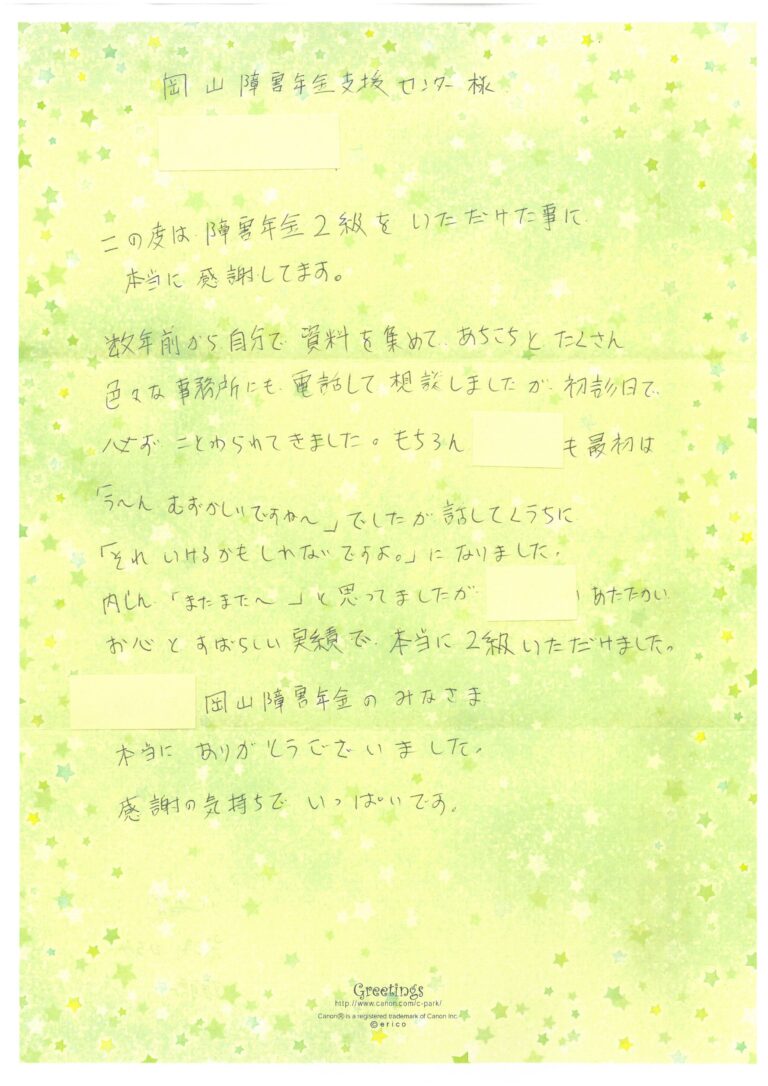 岡山障害年金支援センター様
この度は 障害年金2級を いただけた事に
本当に 感謝してます。
数年前から 自分で 資料を集めて あちこちと たくさん
色々な 事務所にも 電話して 相談しましたが 初診日で
必ず ことわられてきました。もちろん
も最初は
「う〜ん むずかしいですね〜」でしたが 話してくうちに
「それ いけるかもしれないですよ。」に なりました。
内しん「またまた〜」と思ってましたが
あたたかい
お心と すばらしい 実績で 本当に 2級いただけました。
岡山障害年金の みなさま
本当に ありがとうございました。
感謝の気持ちで いっぱいです。
Greetings
http://www.canon.com/c-park/
Canon® is a registered trademark of Canon Inc.
©erico